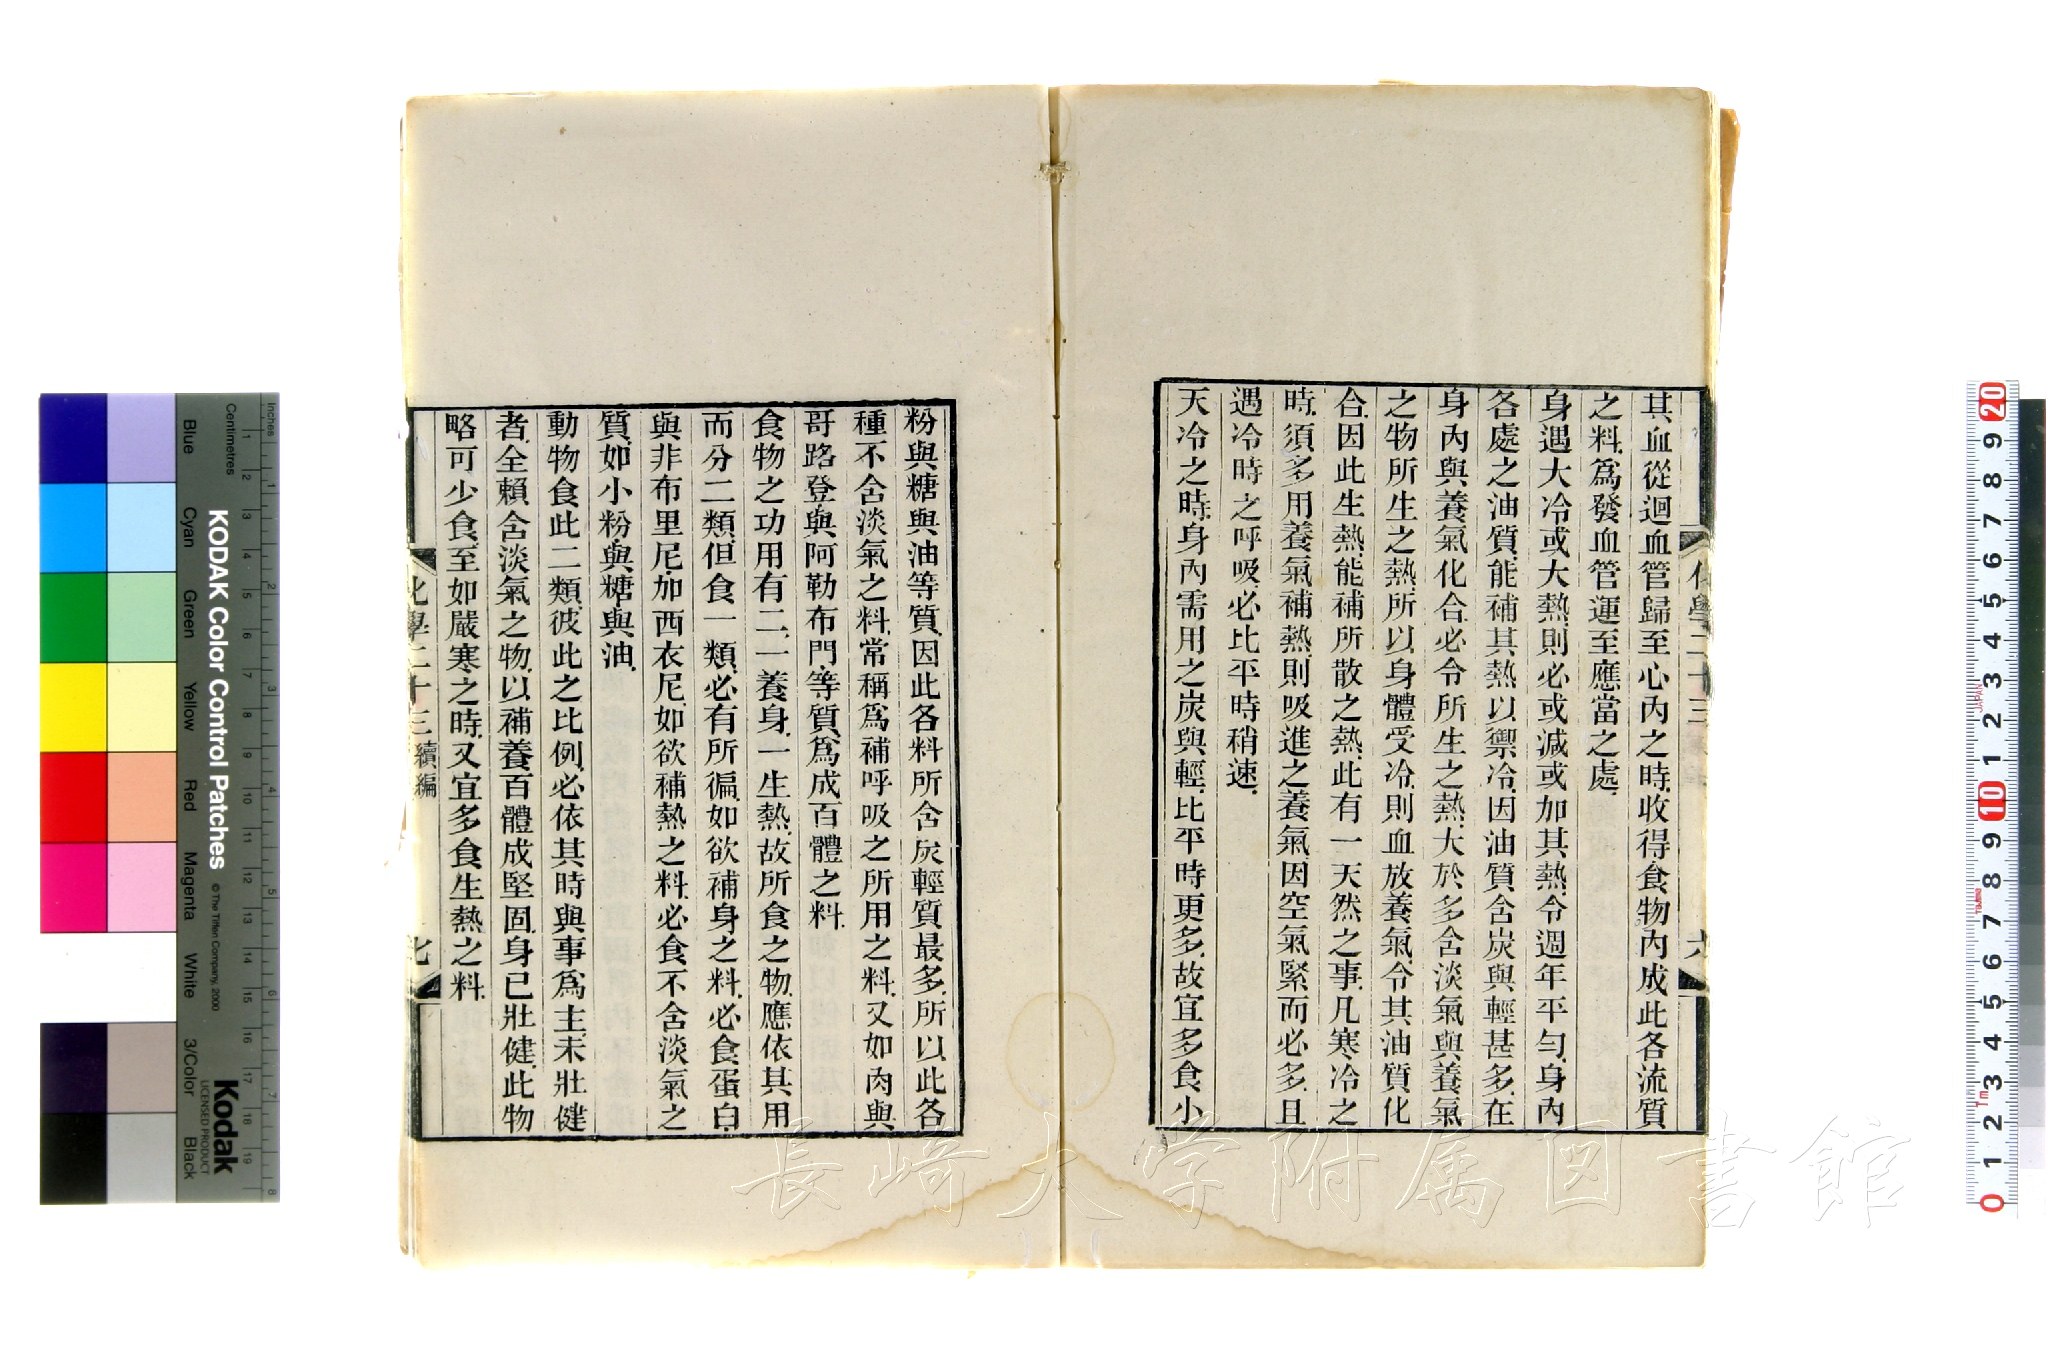 其血從迴血管歸至心內之時、收得食物內成此各流質
之料、爲發血管運至應當之處、
身遇大冷或大熱、則必或減或加其熱、令週年平勻、身內
各處之油質、能補其熱以禦冷、因油質含炭與輕甚多、在
身內與養氣化合、必令所生之熱、大於多含淡氣與養氣
之物所生之熱、所以身體受冷、則血放養氣、令其油質化
合、因此生熱、能補所散之熱、此有一天然之事、凡寒冷之
時、須多用養氣補熱、則吸進之養氣、因空氣緊而必多、且
遇冷時之呼吸、必比平時稍速、
天冷之時、身內需用之炭與輕、比平時更多、故宜多食小
化學二十三
六
粉與糖與油等質、因此各料所含炭輕質最多、所以此各
種不含淡氣之料、常稱爲補呼吸之所用之料、又如肉與
哥路登與阿勒布門等質、爲成百體之料、
食物之功用有二、一養身、一生熱、故所食之物、應依其用
而分二類、但食一類、必有所徧、如欲補身之料、必食蛋白、
與非布里尼、加西衣尼、如欲補熱之料、必食不含淡氣之
質、如小粉與糖與油、
動物食此二類、彼此之比例、必依其時與事爲主、未壯健
者、全賴含淡氣之物、以補養百體成堅固、身已壯健、此物
略可少食、至如嚴寒之時、又宜多食生熱之料、
化學二十三 續編
七
長崎大学附属図書館
KODAK Color Control Patches
© The Tiffen Company, 2000
Kodak
LICENSED PRODUCT
Inches
Centimetres
Blue
Cyan
Green
Yellow
Red
Magenta
White
3/Color
Black
JAPAN